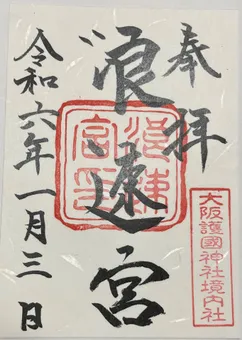 奉拝
浪速宮
浪速
宮印
大阪護國神社境内社
令和六年一月三日